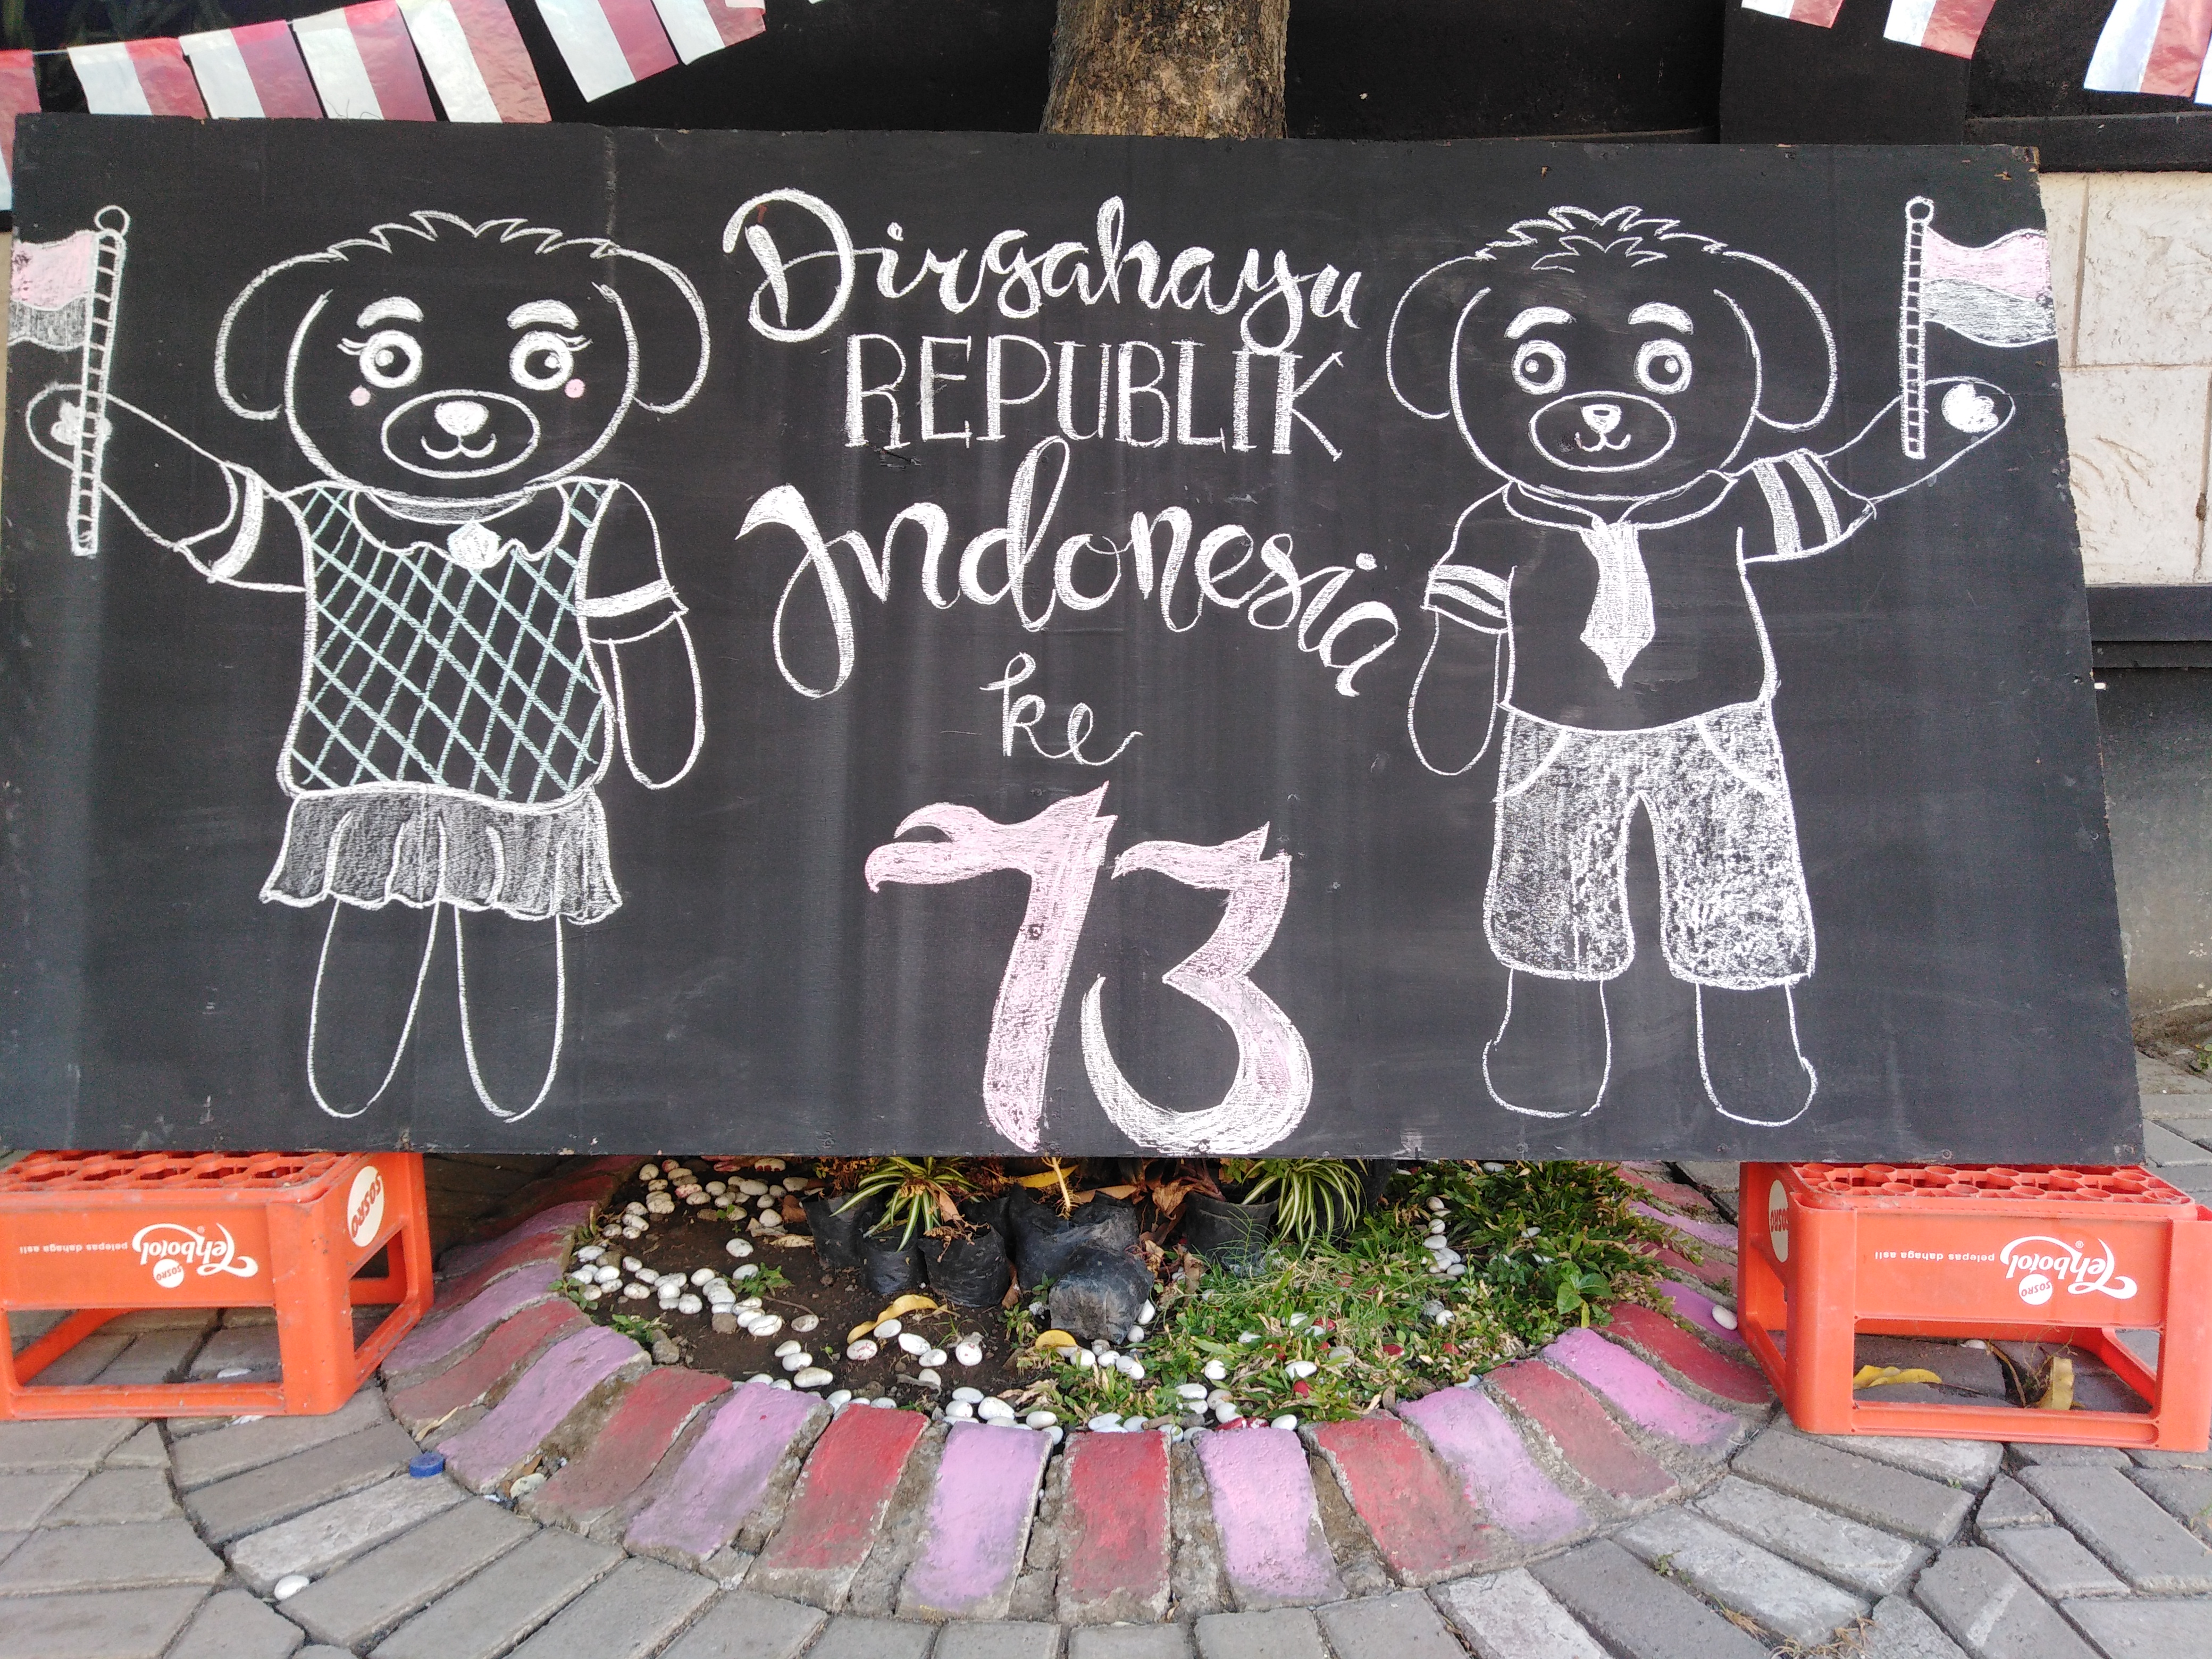 Dirgahayu
REPUBLIK
Indonesia
ke
73
SOSRO
Tehbotol
SOSRO
pelepas dahaga asli
SOSRO
Tehbotol
SOSRO
pelepas dahaga asli